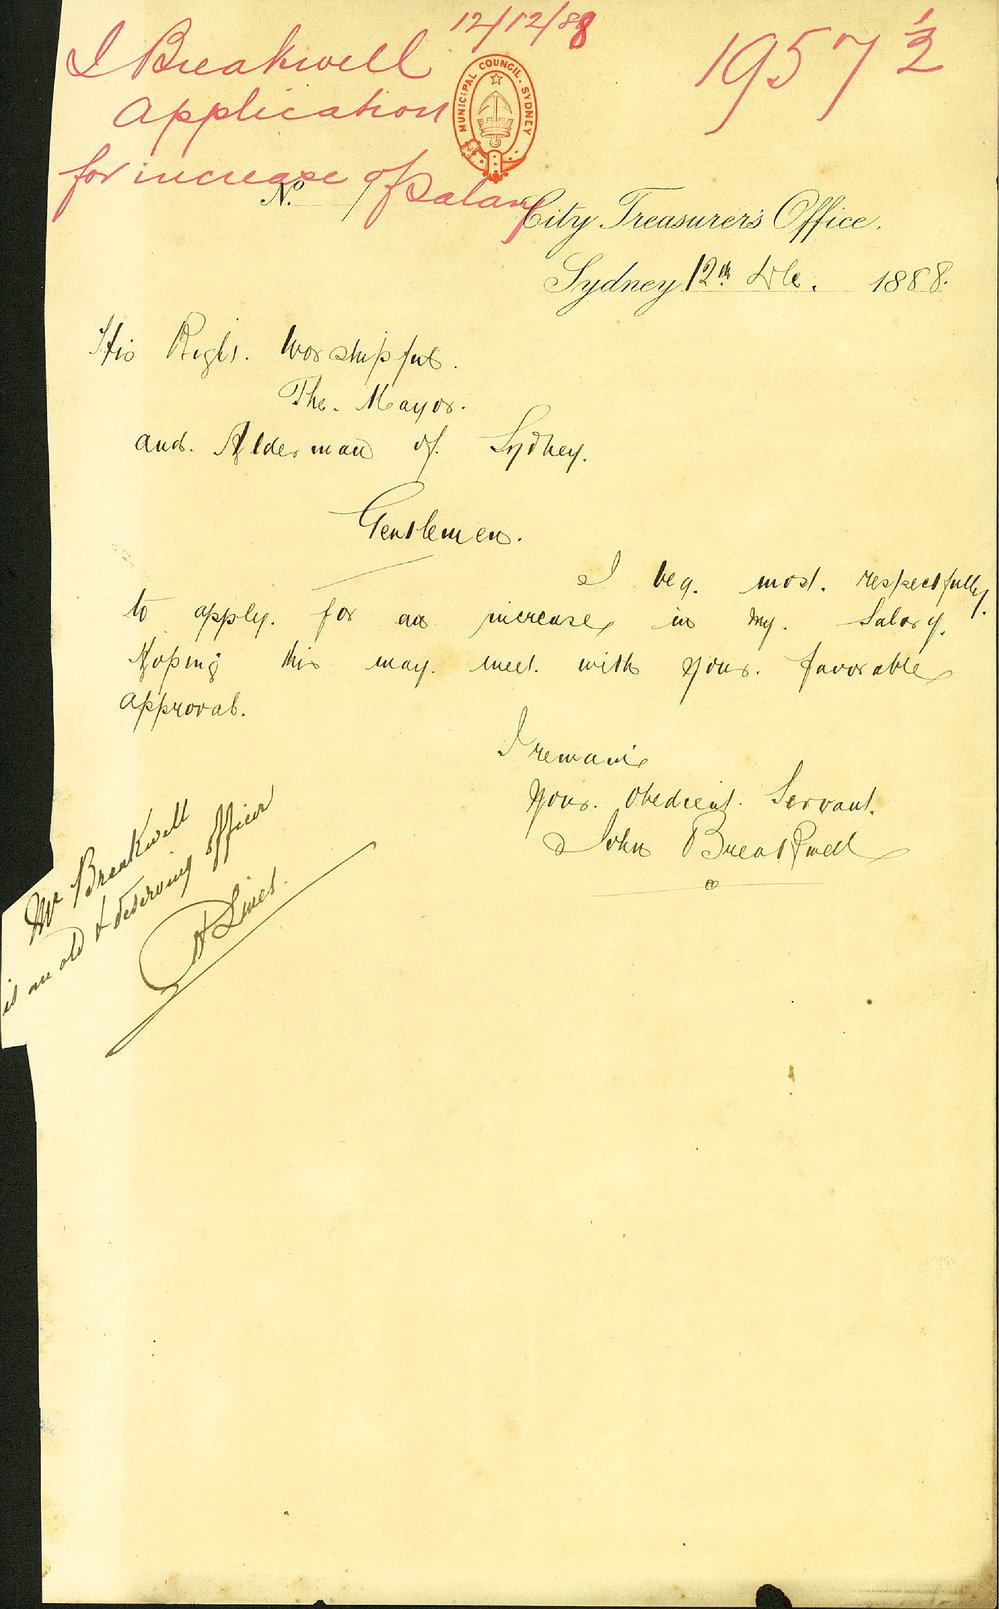 12/12/88
J Breakwell
Application
for increase of Salary
1957 1/2
MUNICIPAL COUNCIL. SYDNEY
No.
City Treasurer's Office.
Sydney 12th Dec. 1888.
His Right. Worshipful.
The. Mayor.
and. Alderman of. Sydney.
Gentlemen.
I beg. most. respectfully.
to apply. for an increase in my. Salary.
Hoping this may. meet. with your. favorable
approval.
I remain
your. obedient. Servant.
John Breakwell
Mr Breakwell
is an old & deserving officer